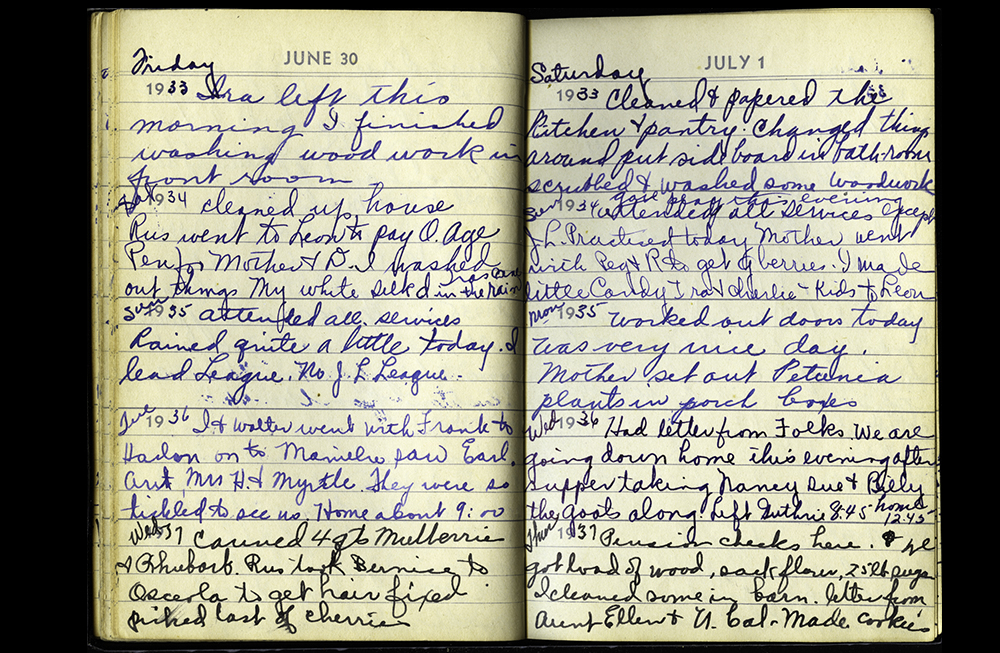 Friday
JUNE 30
1933 Ira left this
morning I finished
washing wood work in
front room
Sat 1934 cleaned up house
Rus went to Leon to pay O. Age
Pen for Mother & D. I washed
out things My white silk d in the rain
Sun 1935 attended all services
Rained quite a little today. I
lead League. No J L League.
Tue 1936 I & Walter went with Frank to
on to saw Earl.
Aunt, Mrs H. & Myrtle. They were so
tickled to see us. Home about 9:00
Wed 37 canned 4 qts Mulberrie
& Rhubarb. Rus took Bernice to
Osceola to get hair fixed
picked last of cherries
Saturday
JULY 1
1933 Cleaned & papered the
Kitchen & pantry. Changed thing
around put side board in bath-room
scrubbed & washed some woodwork
this evening
Sun 1934 attended all services except
J L. Practiced today Mother went
with Peg & R to get g berries. I made
little Candy Ira & Charlie - Kids to Leon
Mon 1935 worked out doors today
was very nice day.
Mother set out Petunia
plants in porch boxes
Wed 1936 Had letter from Folks. We are
going down home this evening after
supper taking Nancy Sue & Billy
the goats along Left Guthrie 8:45 home
12:45
Thur 1937 Pension checks here. &
got load of wood, sack flour, 25 lb sugar
I cleaned some in barn. letter from
Aunt Ellen & U. Cal - Made cookies